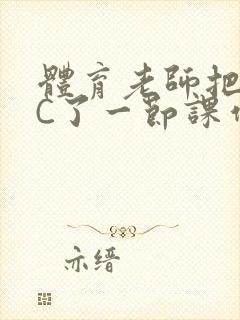 體育老師把
C了一節課
亦缙